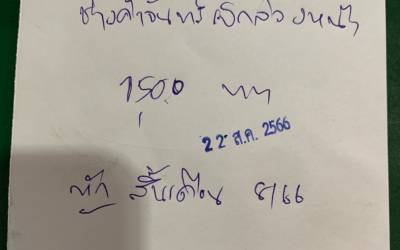 ช่างคำจันทร์ เบิกล่วงหน้า
1500 บาท
22 ส.ค. 2566
หัก สิ้นเดือน 8/66